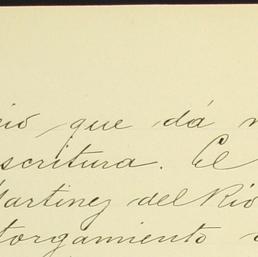 que dá
scritura. El
artinez del Rio
torgamiento